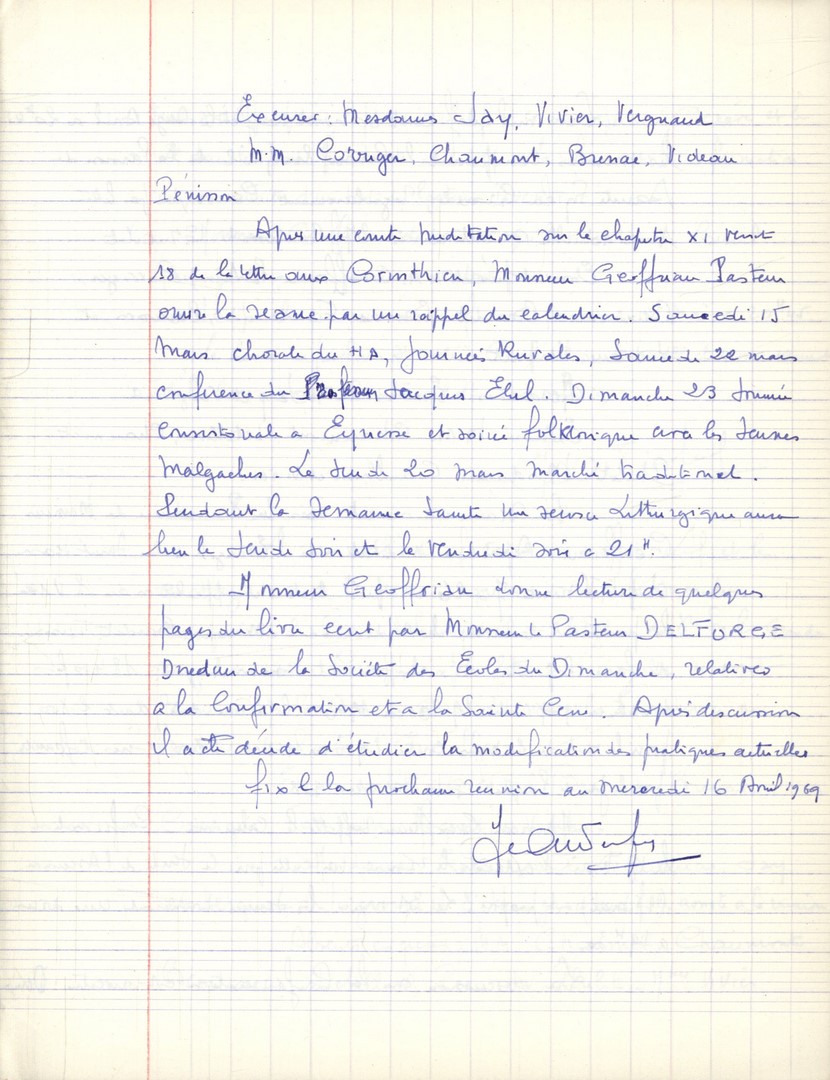 Excuses: Mesdames Jay, Vivier, Vergnaud
M.M. Coruger, Chaumont, Brenac, Videau
Pénisson
Apres une courte meditation sur le chapitre XI verset
18 de la lettre aux Corinthien, Monsieur Geoffrian Pasteur
ouvre la seance par un rappel du calendrier. Samedi 15
Mars chorale du HA, Journées Rurales, Samedi 22 mars
conference du Professeur Jacques Elul. Dimanche 23 Journée
Consistoriale a Eynesse et soirée folklorique avec les Jeunes
Malgaches. Le Jeudi 20 mars marché traditionnel.
Pendant la Semaine Sainte un service Litturgique aura
lieu le Jeudi soir et le vendredi soir a 21H.
Monsieur Geoffrian donne lecture de quelques
pages du livre ecrit par Monsieur le Pasteur DELFORGE
Directeur de la Société des Ecoles du Dimanche, relatives
a la Confirmation et a la Sainte Cene. Après discussion
il a été décidé d'étudier la modification des pratiques actuelles
fixe la prochaine reunion au mercredi 16 Avril 1969